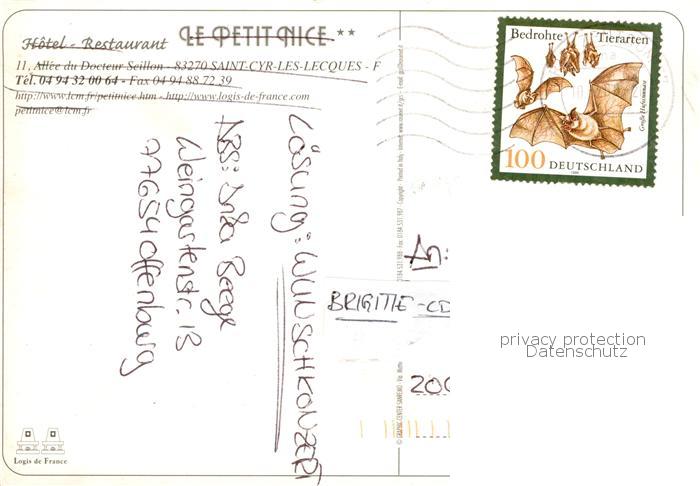 LE PETIT NICE **
Hôtel - Restaurant
11, Allée du Docteur Seillon - 83270 SAINT-CYR-LES-LECQUES - F
Tél. 04 94 32 00 64 - Fax 04 94 88 72 39
http://www.lcm.fr/petitnice.htm - http://www.logis-de-france.com
petitnice@lcm.fr
Lösung: WUNSCHKONZERT
ABS: Inka Beege
Weingartenstr. 13
77654 Offenburg
Logis de France
Bedrohte Tierarten
Große Hufeisennase
100 DEUTSCHLAND
An:
BRIGITTE-CD
200
privacy protection
Datenschutz